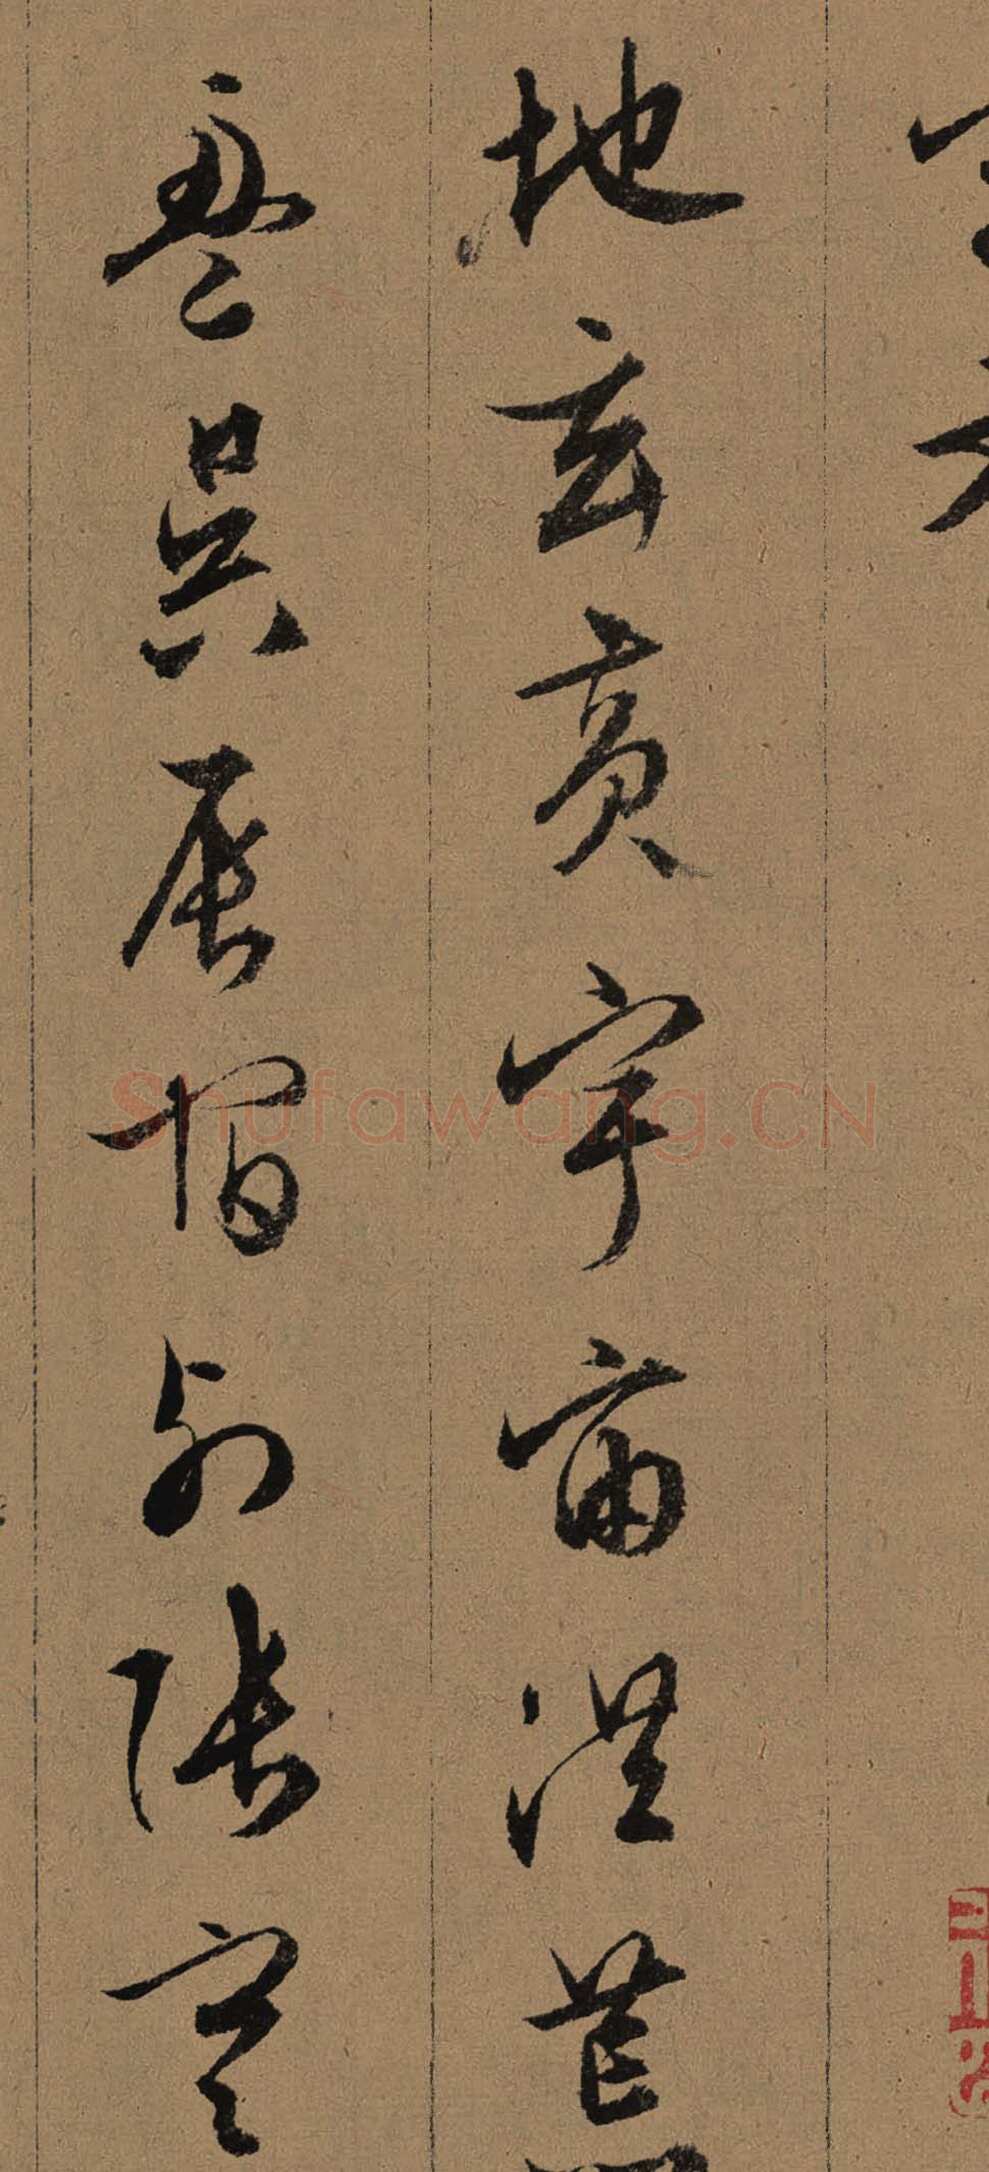 地玄黃宇宙洪荒
盈昃辰宿列張寒
Shufawang.CN